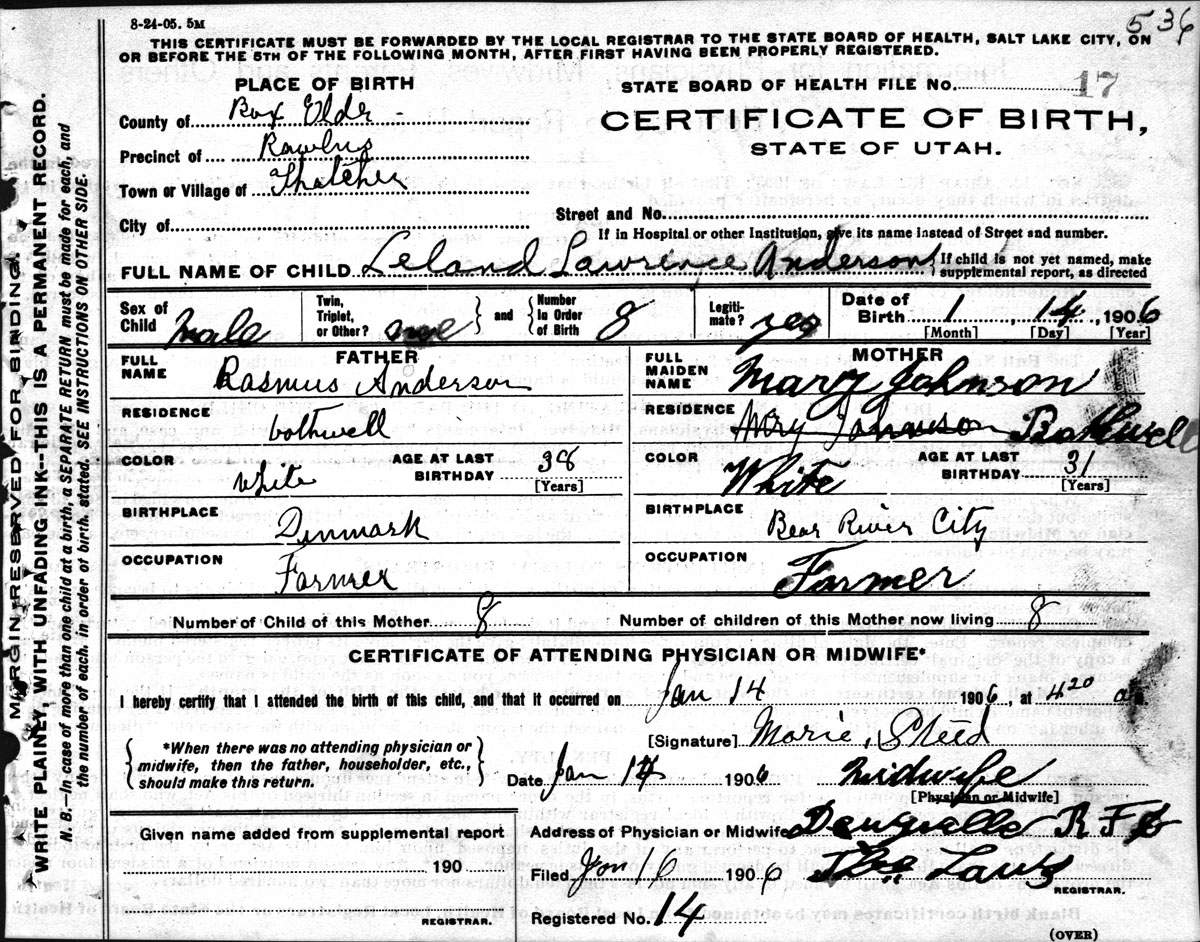 8-24-05. 5M
536
THIS CERTIFICATE MUST BE FORWARDED BY THE LOCAL REGISTRAR TO THE STATE BOARD OF HEALTH, SALT LAKE CITY, ON
OR BEFORE THE 5TH OF THE FOLLOWING MONTH, AFTER FIRST HAVING BEEN PROPERLY REGISTERED.
PLACE OF BIRTH
STATE BOARD OF HEALTH FILE No. 17
County of Box Elder
CERTIFICATE OF BIRTH,
Precinct of
STATE OF UTAH.
Town or Village of Thatcher
Street and No.
City of
If in Hospital or other Institution, give its name instead of Street and number.
FULL NAME OF CHILD Leland Lawrence Anderson { If child is not yet named, make
supplemental report, as directed
Sex of Child male
Twin, Triplet, or Other? one } and { Number In Order of Birth 8
Legitimate? yes
Date of Birth 1, 14, 1906
[Month] [Day] [Year]
FATHER
FULL NAME Rasmus Anderson
RESIDENCE bothwell
COLOR white AGE AT LAST BIRTHDAY 38 [Years]
BIRTHPLACE Denmark
OCCUPATION Farmer
MOTHER
FULL MAIDEN NAME Mary Johnson
RESIDENCE Mary Johnson Bothwell
COLOR White AGE AT LAST BIRTHDAY 31 [Years]
BIRTHPLACE Bear River City
OCCUPATION Farmer
Number of Child of this Mother 8 Number of children of this Mother now living 8
CERTIFICATE OF ATTENDING PHYSICIAN OR MIDWIFE*
I hereby certify that I attended the birth of this child, and that it occurred on Jan 14 1906, at 4 20 a m.
{ *When there was no attending physician or
midwife, then the father, householder, etc.,
should make this return. }
[Signature] Marie Steed
Date Jan 14 1906 Midwife
[Physician or Midwife]
Given name added from supplemental report
190
REGISTRAR.
Address of Physician or Midwife R F
Filed Jan 16 1906
REGISTRAR.
Registered No. 14
(OVER)
MARGIN RESERVED FOR BINDING.
WRITE PLAINLY WITH UNFADING INK—THIS IS A PERMANENT RECORD.
N. B.—In case of more than one child at a birth, a SEPARATE RETURN must be made for each, and
the number of each, in order of birth, stated. SEE INSTRUCTIONS ON OTHER SIDE.